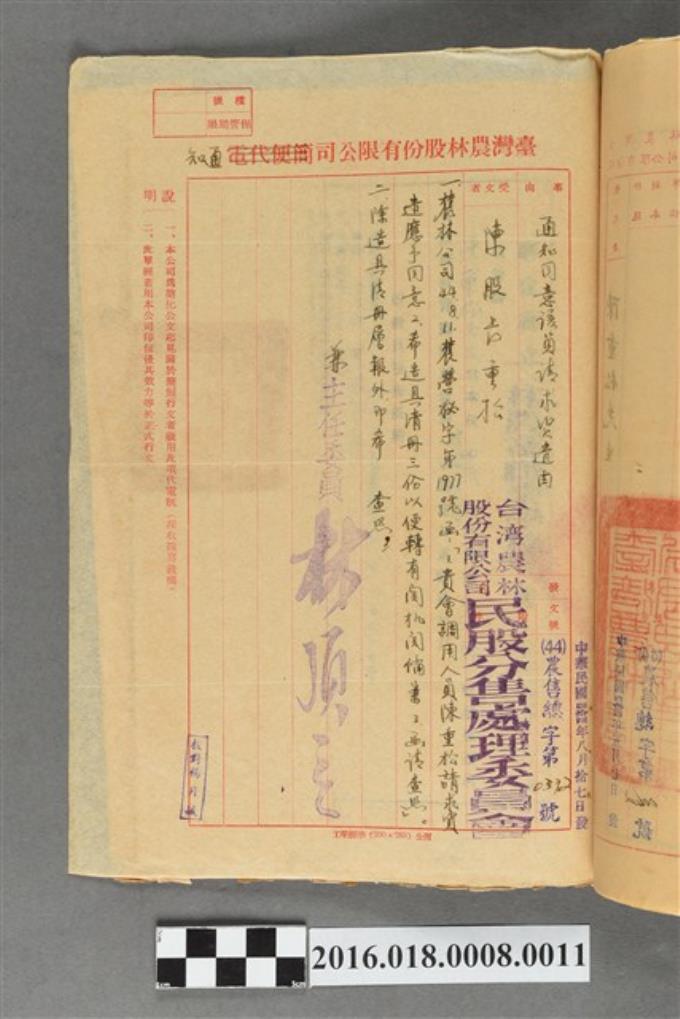 檔號
保管期限
臺灣農林股份有限公司簡便代電
通知
事由
受文者
通知同意該員請求資遣由
陳股長重松
發文號
中華民國四四年八月拾七日發
(44)農售總字第0332號
台湾農林股份有限公司
民股分售處理委員會
一、農林公司44.8.11.農營秘字第1977號函「貴會調用人員陳重松請求資
遣應予同意2.希造具清冊三份以便轉有関机関備業3.函請查照」。
二、除造具清冊層報外、即希 查照。
兼主任委員 林頂立
說明
一、本公司為簡化公文起見關於簡短行文者啟用此項代電紙
二、此單經蓋用本公司印信後具效力等於正式行文
2016.018.0008.0011